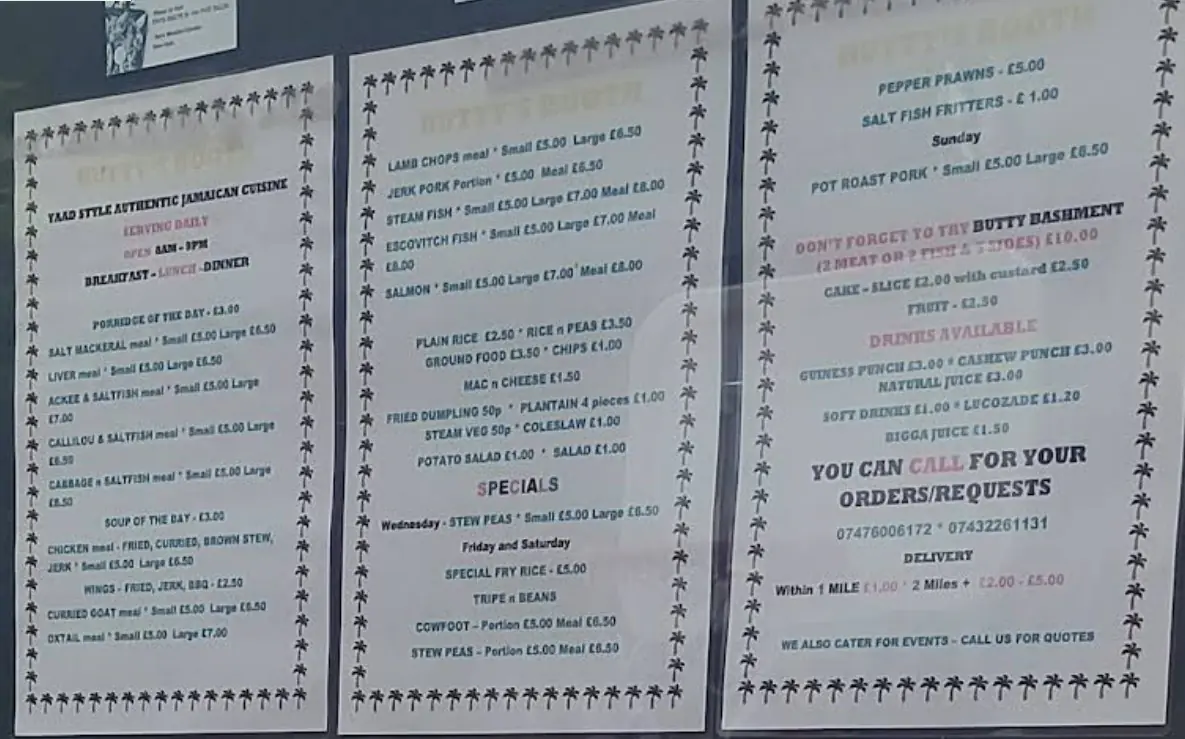 YAAD STYLE AUTHENTIC JAMAICAN CUISINE
SERVING DAILY
OPEN 8AM - 9PM
BREAKFAST - LUNCH - DINNER
PORREDGE OF THE DAY - £3.00
SALT MACKERAL meal * Small £5.00 Large £6.50
LIVER meal * Small £5.00 Large £6.50
ACKEE & SALTFISH meal * Small £5.00 Large
£7.00
CALLILOU & SALTFISH meal * Small £5.00 Large
£6.50
CABBAGE n SALTFISH meal * Small £5.00 Large
£6.50
SOUP OF THE DAY - £3.00
CHICKEN meal - FRIED, CURRIED, BROWN STEW,
JERK * Small £5.00 Large £6.50
WINGS - FRIED, JERK, BBQ - £2.50
CURRIED GOAT meal * Small £5.00 Large £6.50
OXTAIL meal * Small £5.00 Large £7.00
LAMB CHOPS meal * Small £5.00 Large £6.50
JERK PORK Portion * £5.00 Meal £6.50
STEAM FISH * Small £5.00 Large £7.00 Meal £8.00
ESCOVITCH FISH * Small £5.00 Large £7.00 Meal
£8.00
SALMON * Small £5.00 Large £7.00 * Meal £8.00
PLAIN RICE £2.50 * RICE n PEAS £3.50
GROUND FOOD £3.50 * CHIPS £1.00
MAC n CHEESE £1.50
FRIED DUMPLING 50p * PLANTAIN 4 pieces £1.00
STEAM VEG 50p * COLESLAW £1.00
POTATO SALAD £1.00 * SALAD £1.00
SPECIALS
Wednesday - STEW PEAS * Small £5.00 Large £6.50
Friday and Saturday
SPECIAL FRY RICE - £5.00
TRIPE n BEANS
COWFOOT – Portion £5.00 Meal £6.50
STEW PEAS – Portion £5.00 Meal £6.50
PEPPER PRAWNS - £5.00
SALT FISH FRITTERS - £ 1.00
Sunday
POT ROAST PORK * Small £5.00 Large £6.50
DON'T FORGET TO TRY BUTTY BASHMENT
(2 MEAT OR 2 FISH & 3 SIDES) £10.00
CAKE – SLICE £2.00 with custard £2.50
FRUIT - £2.50
DRINKS AVAILABLE
GUINESS PUNCH £3.00 * CASHEW PUNCH £3.00
NATURAL JUICE £3.00
SOFT DRINKS £1.00 * LUCOZADE £1.20
BIGGA JUICE £1.50
YOU CAN CALL FOR YOUR
ORDERS/REQUESTS
07476006172 * 07432261131
DELIVERY
Within 1 MILE £1.00 * 2 Miles + £2.00 - £5.00
WE ALSO CATER FOR EVENTS – CALL US FOR QUOTES